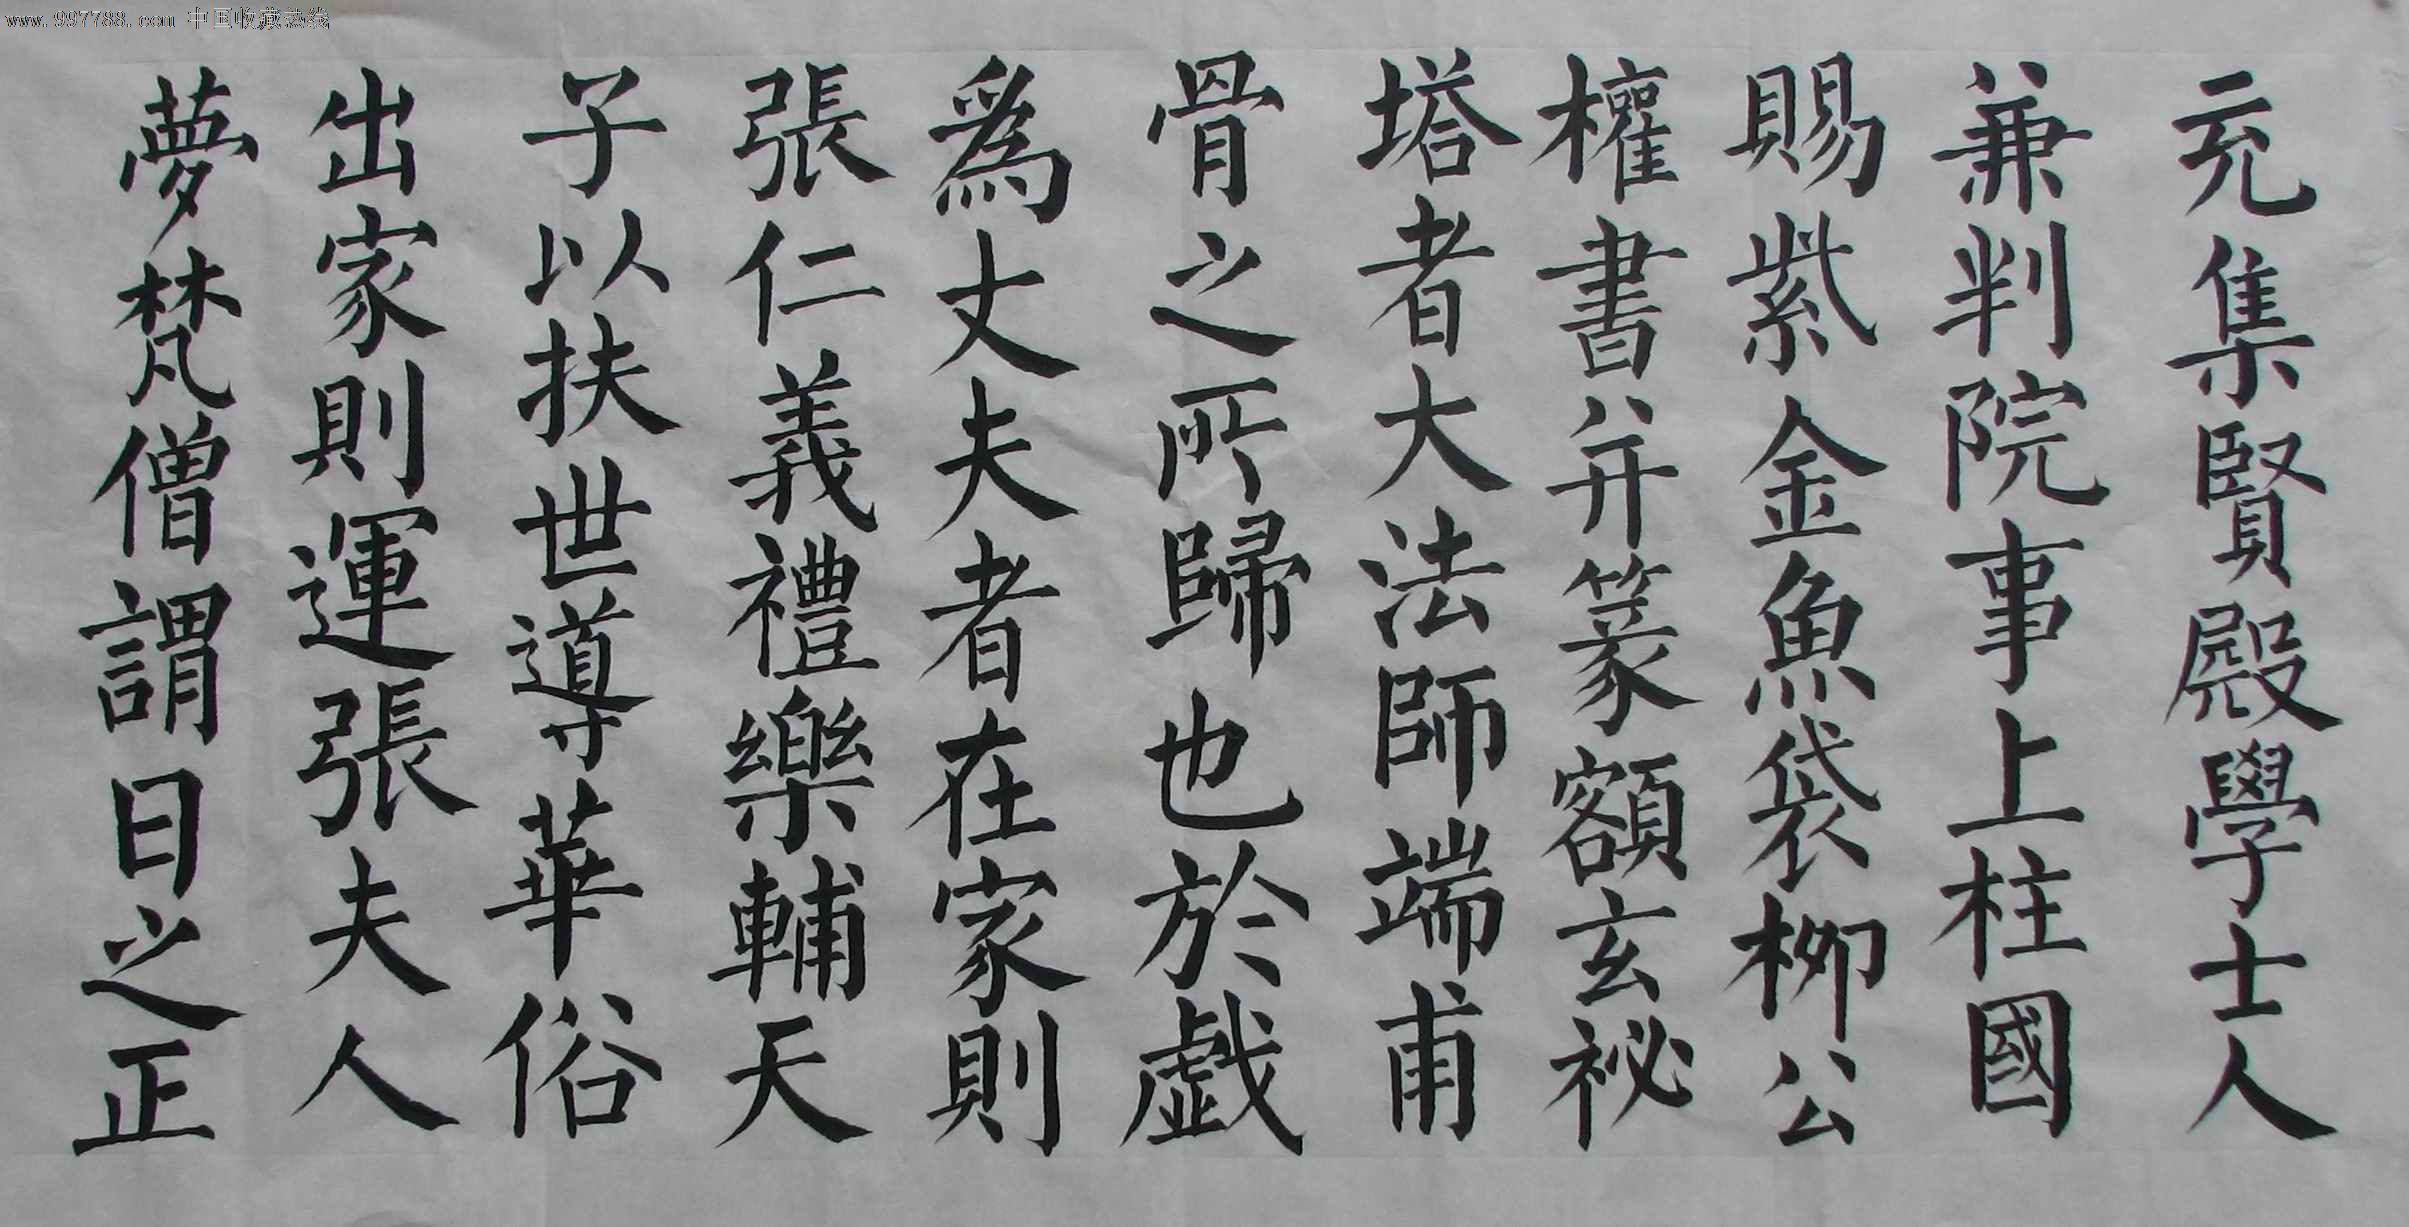 www.997788.com 中国收藏热线
充集賢殿學士人
兼判院事上柱國
賜紫金魚袋柳公
權書并篆額玄祕
塔者大法師端甫
骨之所歸也於戯
爲丈夫者在家則
張仁義禮樂輔天
子以扶世導華俗
出家則運張夫人
夢梵僧謂曰之正